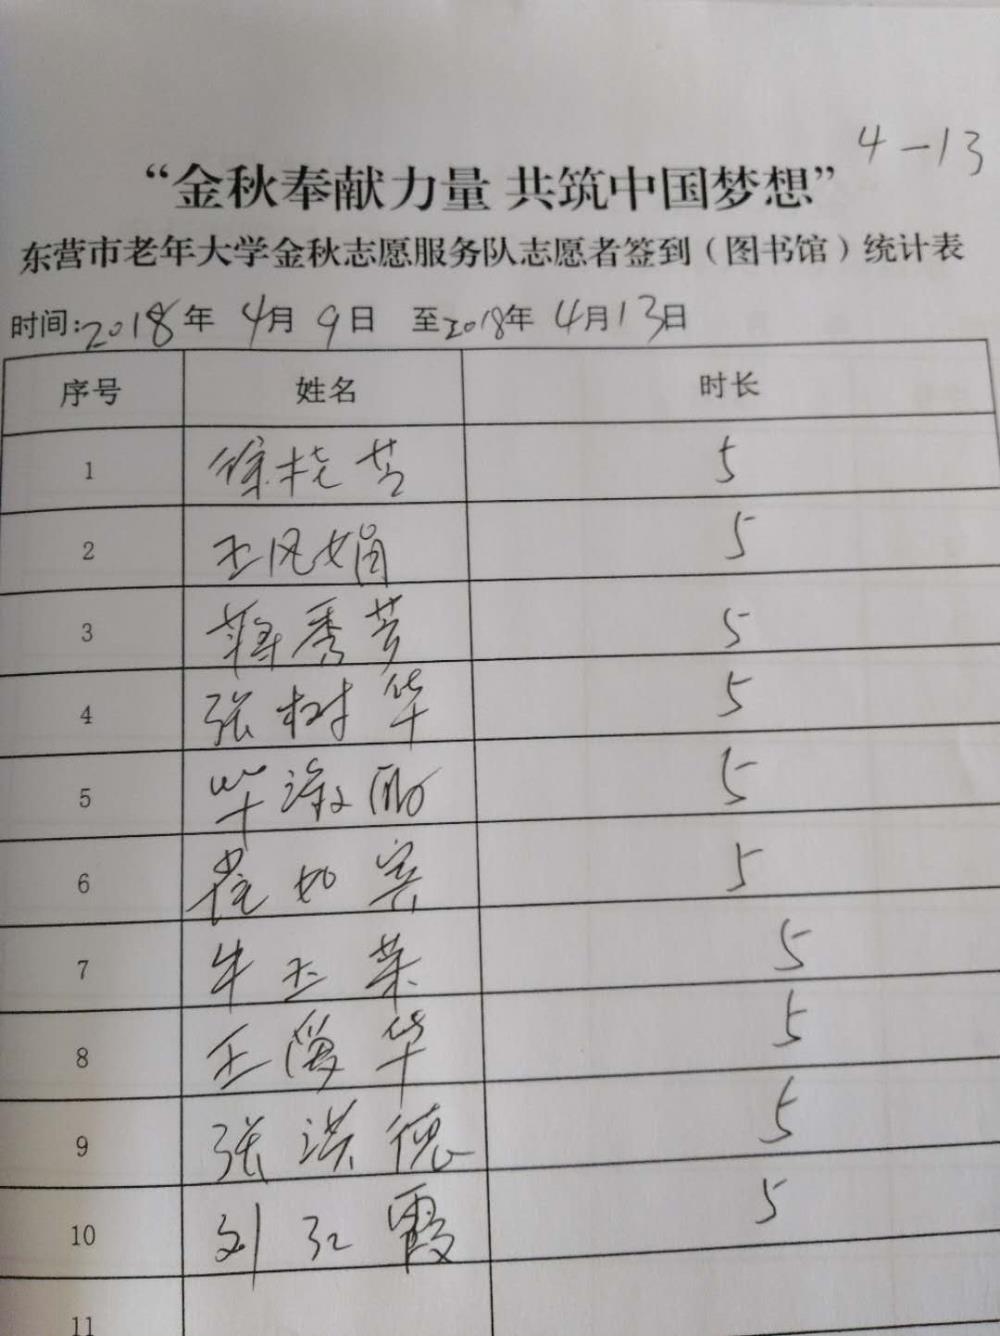 4-13
“金秋奉献力量 共筑中国梦想”
东营市老年大学金秋志愿服务队志愿者签到（图书馆）统计表
时间:2018年 4月9日 至2018年4月13日
序号 姓名 时长
1 徐桂芳 5
2 王风娟 5
3 蒋秀芳 5
4 张树华 5
5 毕淑丽 5
6 崔如宾 5
7 牛玉荣 5
8 王爱华 5
9 张洪德 5
10 刘红霞 5
11